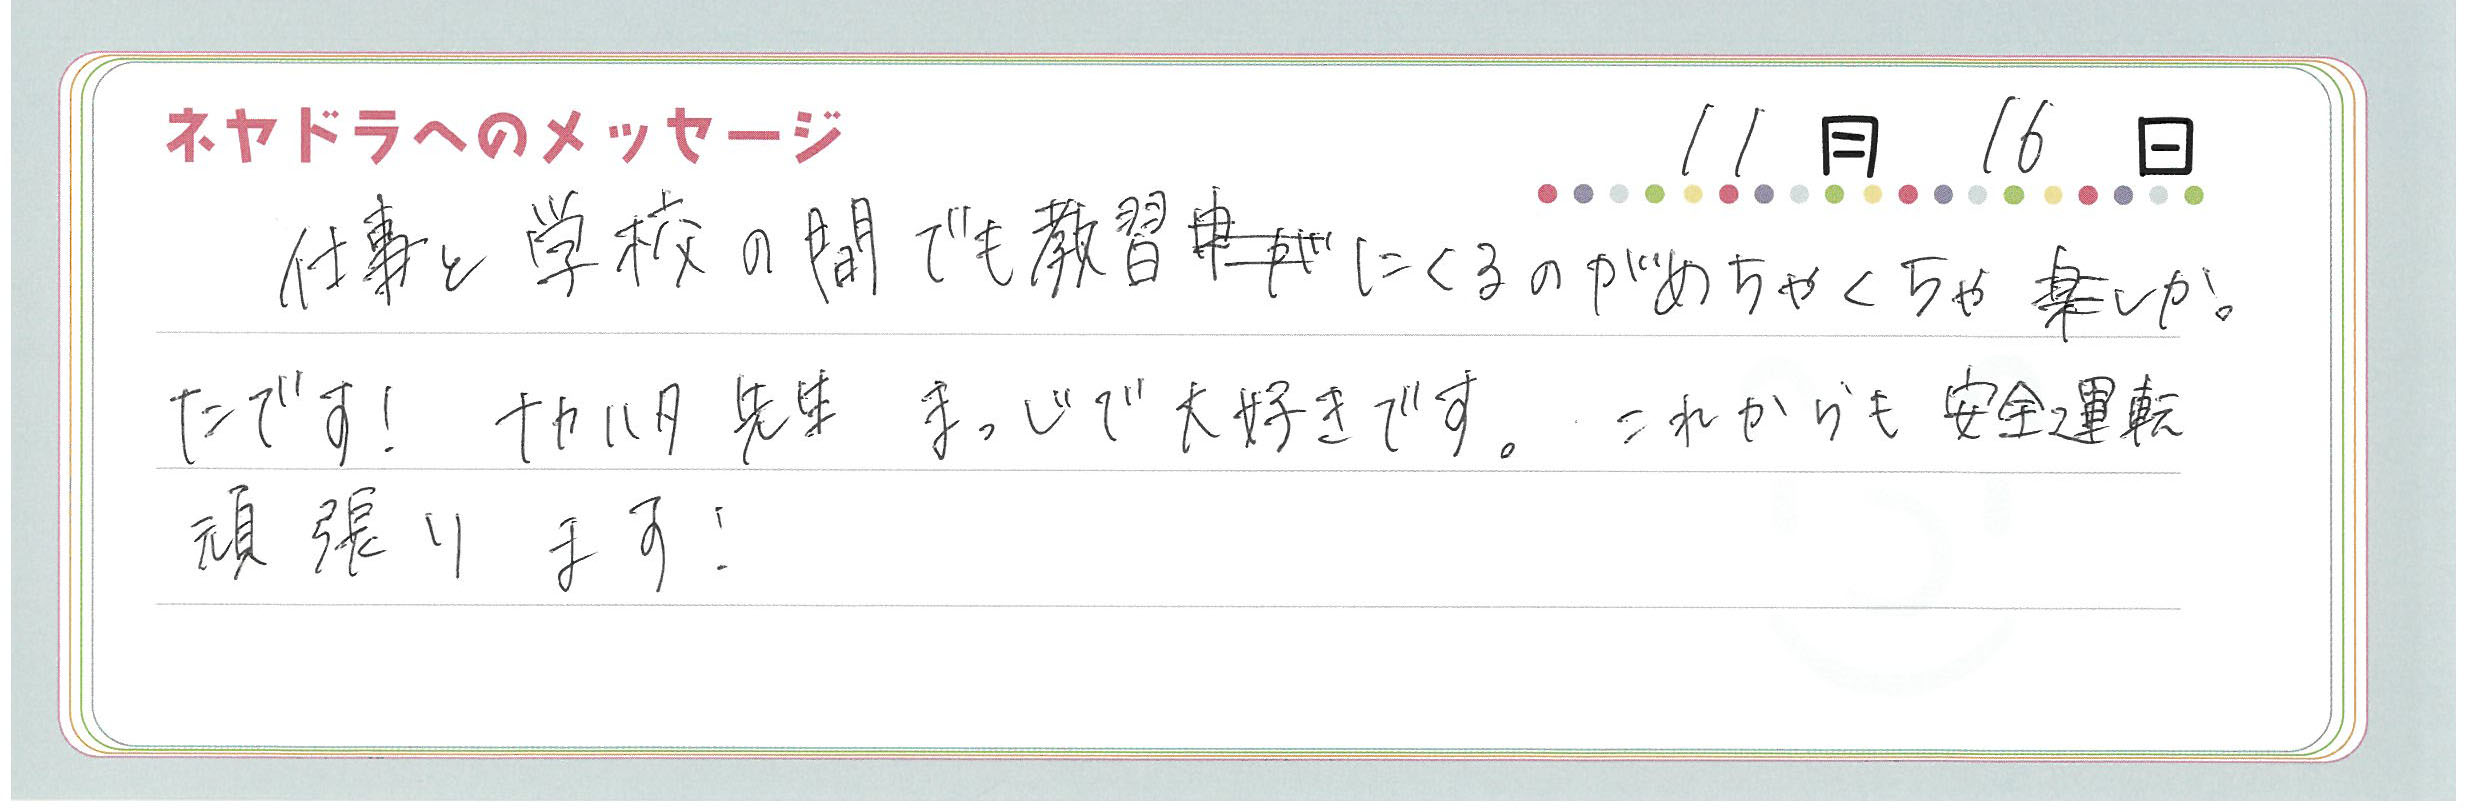 ネヤドラへのメッセージ
11月 16日
仕事と学校の間でも教習にくるのがめちゃくちゃ楽しか。
たです! 先生 まっじで大好きです。これからも安全運転
頑張ります!